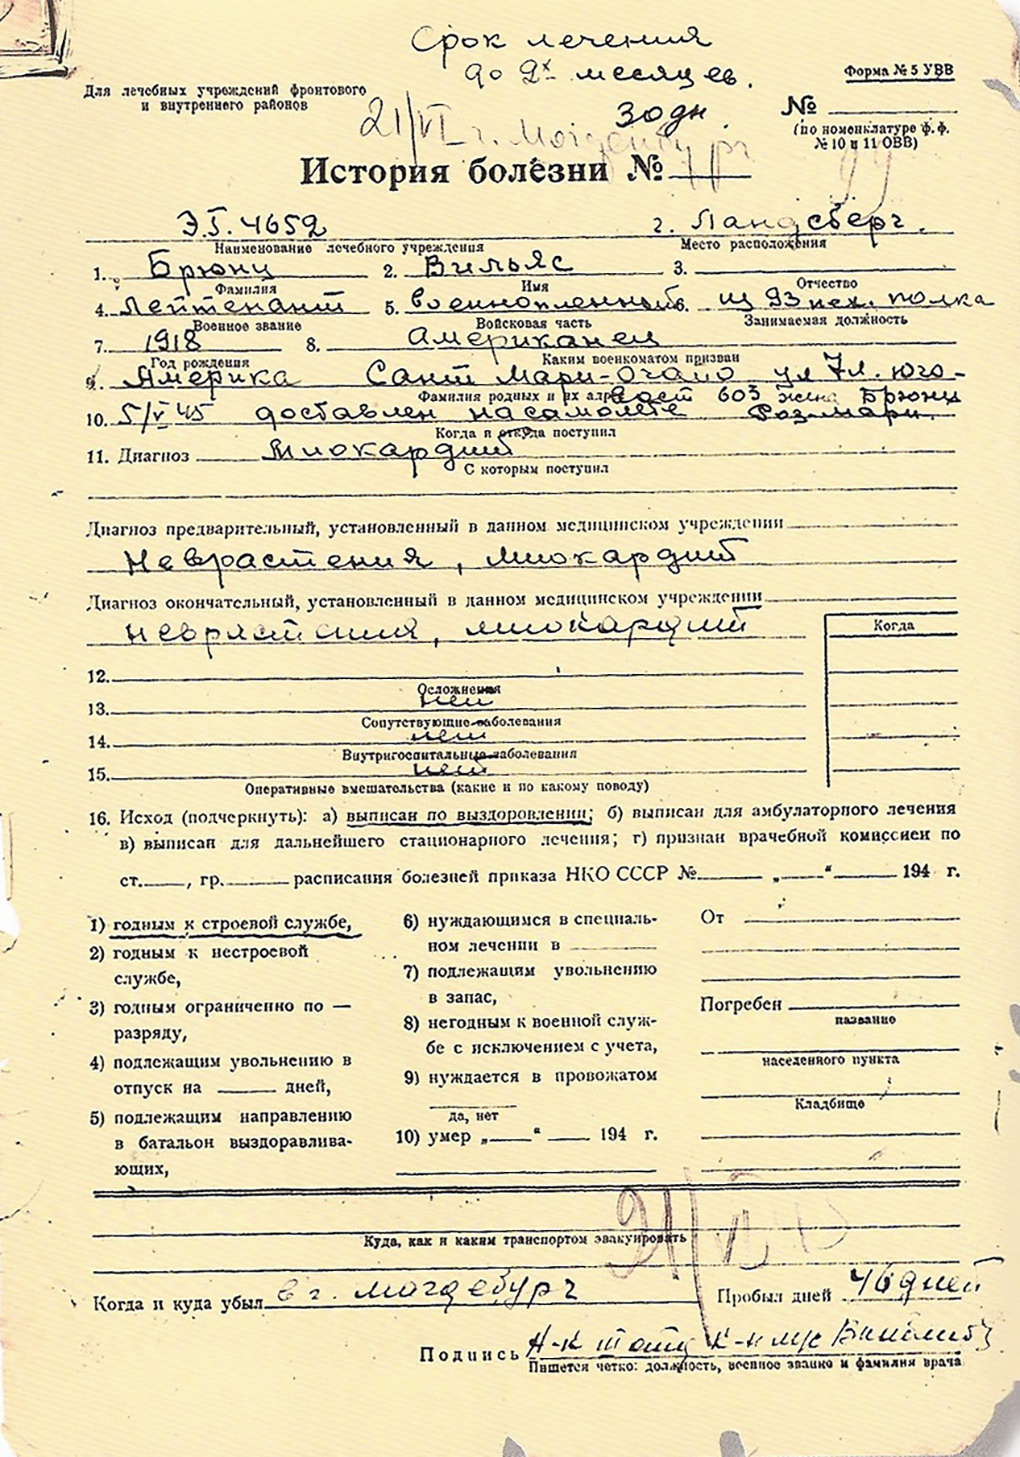 Срок лечения
до 2х месяцев.
Форма № 5 УВВ
Для лечебных учреждений фронтового
и внутреннего районов
30 дн.
№
21/VI г. Магдебург
(по номенклатуре ф. ф.
№ 10 и 11 ОВВ)
История болезни №
Э.Г. 4652 г. Ландсберг.
Наименование лечебного учреждения Место расположения
1. Брюнц 2. Вильяс 3.
Фамилия Имя Отчество
4. Лейтенант 5. военнопленный 6. из 93 пех. полка
Военное звание Войсковая часть Занимаемая должность
7. 1918 8. Американец
Год рождения Каким военкоматом призван
9. Америка Сант Мари-Огайо ул 7л. юго-
Фамилия родных и их адрес ост 603 жена Брюнц
10. 5/V 45 доставлен на самолете Розмари.
Когда и откуда поступил
11. Диагноз Миокардит
С которым поступил
Диагноз предварительный, установленный в данном медицинском учреждении
Неврастения, миокардит
Диагноз окончательный, установленный в данном медицинском учреждении
неврастения, миокардит
Когда
12.
Осложнения
нет
13.
Сопутствующие заболевания
нет
14.
Внутригоспитальные заболевания
нет
15.
Оперативные вмешательства (какие и по какому поводу)
16. Исход (подчеркнуть): а) выписан по выздоровлении; б) выписан для амбулаторного лечения
в) выписан для дальнейшего стационарного лечения; г) признан врачебной комиссией по
ст. , гр. расписания болезней приказа НКО СССР № „ “ 194 г.
1) годным к строевой службе,
2) годным к нестроевой
службе,
3) годным ограниченно по —
разряду,
4) подлежащим увольнению в
отпуск на дней,
5) подлежащим направлению
в батальон выздоравлива-
ющих,
6) нуждающимся в специаль-
ном лечении в
7) подлежащим увольнению
в запас,
8) негодным к военной служ-
бе с исключением с учета,
9) нуждается в провожатом
да, нет
10) умер „ “ 194 г.
От
Погребен
название
населенного пункта
Кладбище
21/VI
Куда, как и каким транспортом эвакуировать
Когда и куда убыл в г. Магдебург Пробыл дней 46 дней
Подпись
Пишется четко: должность, военное звание и фамилия врача